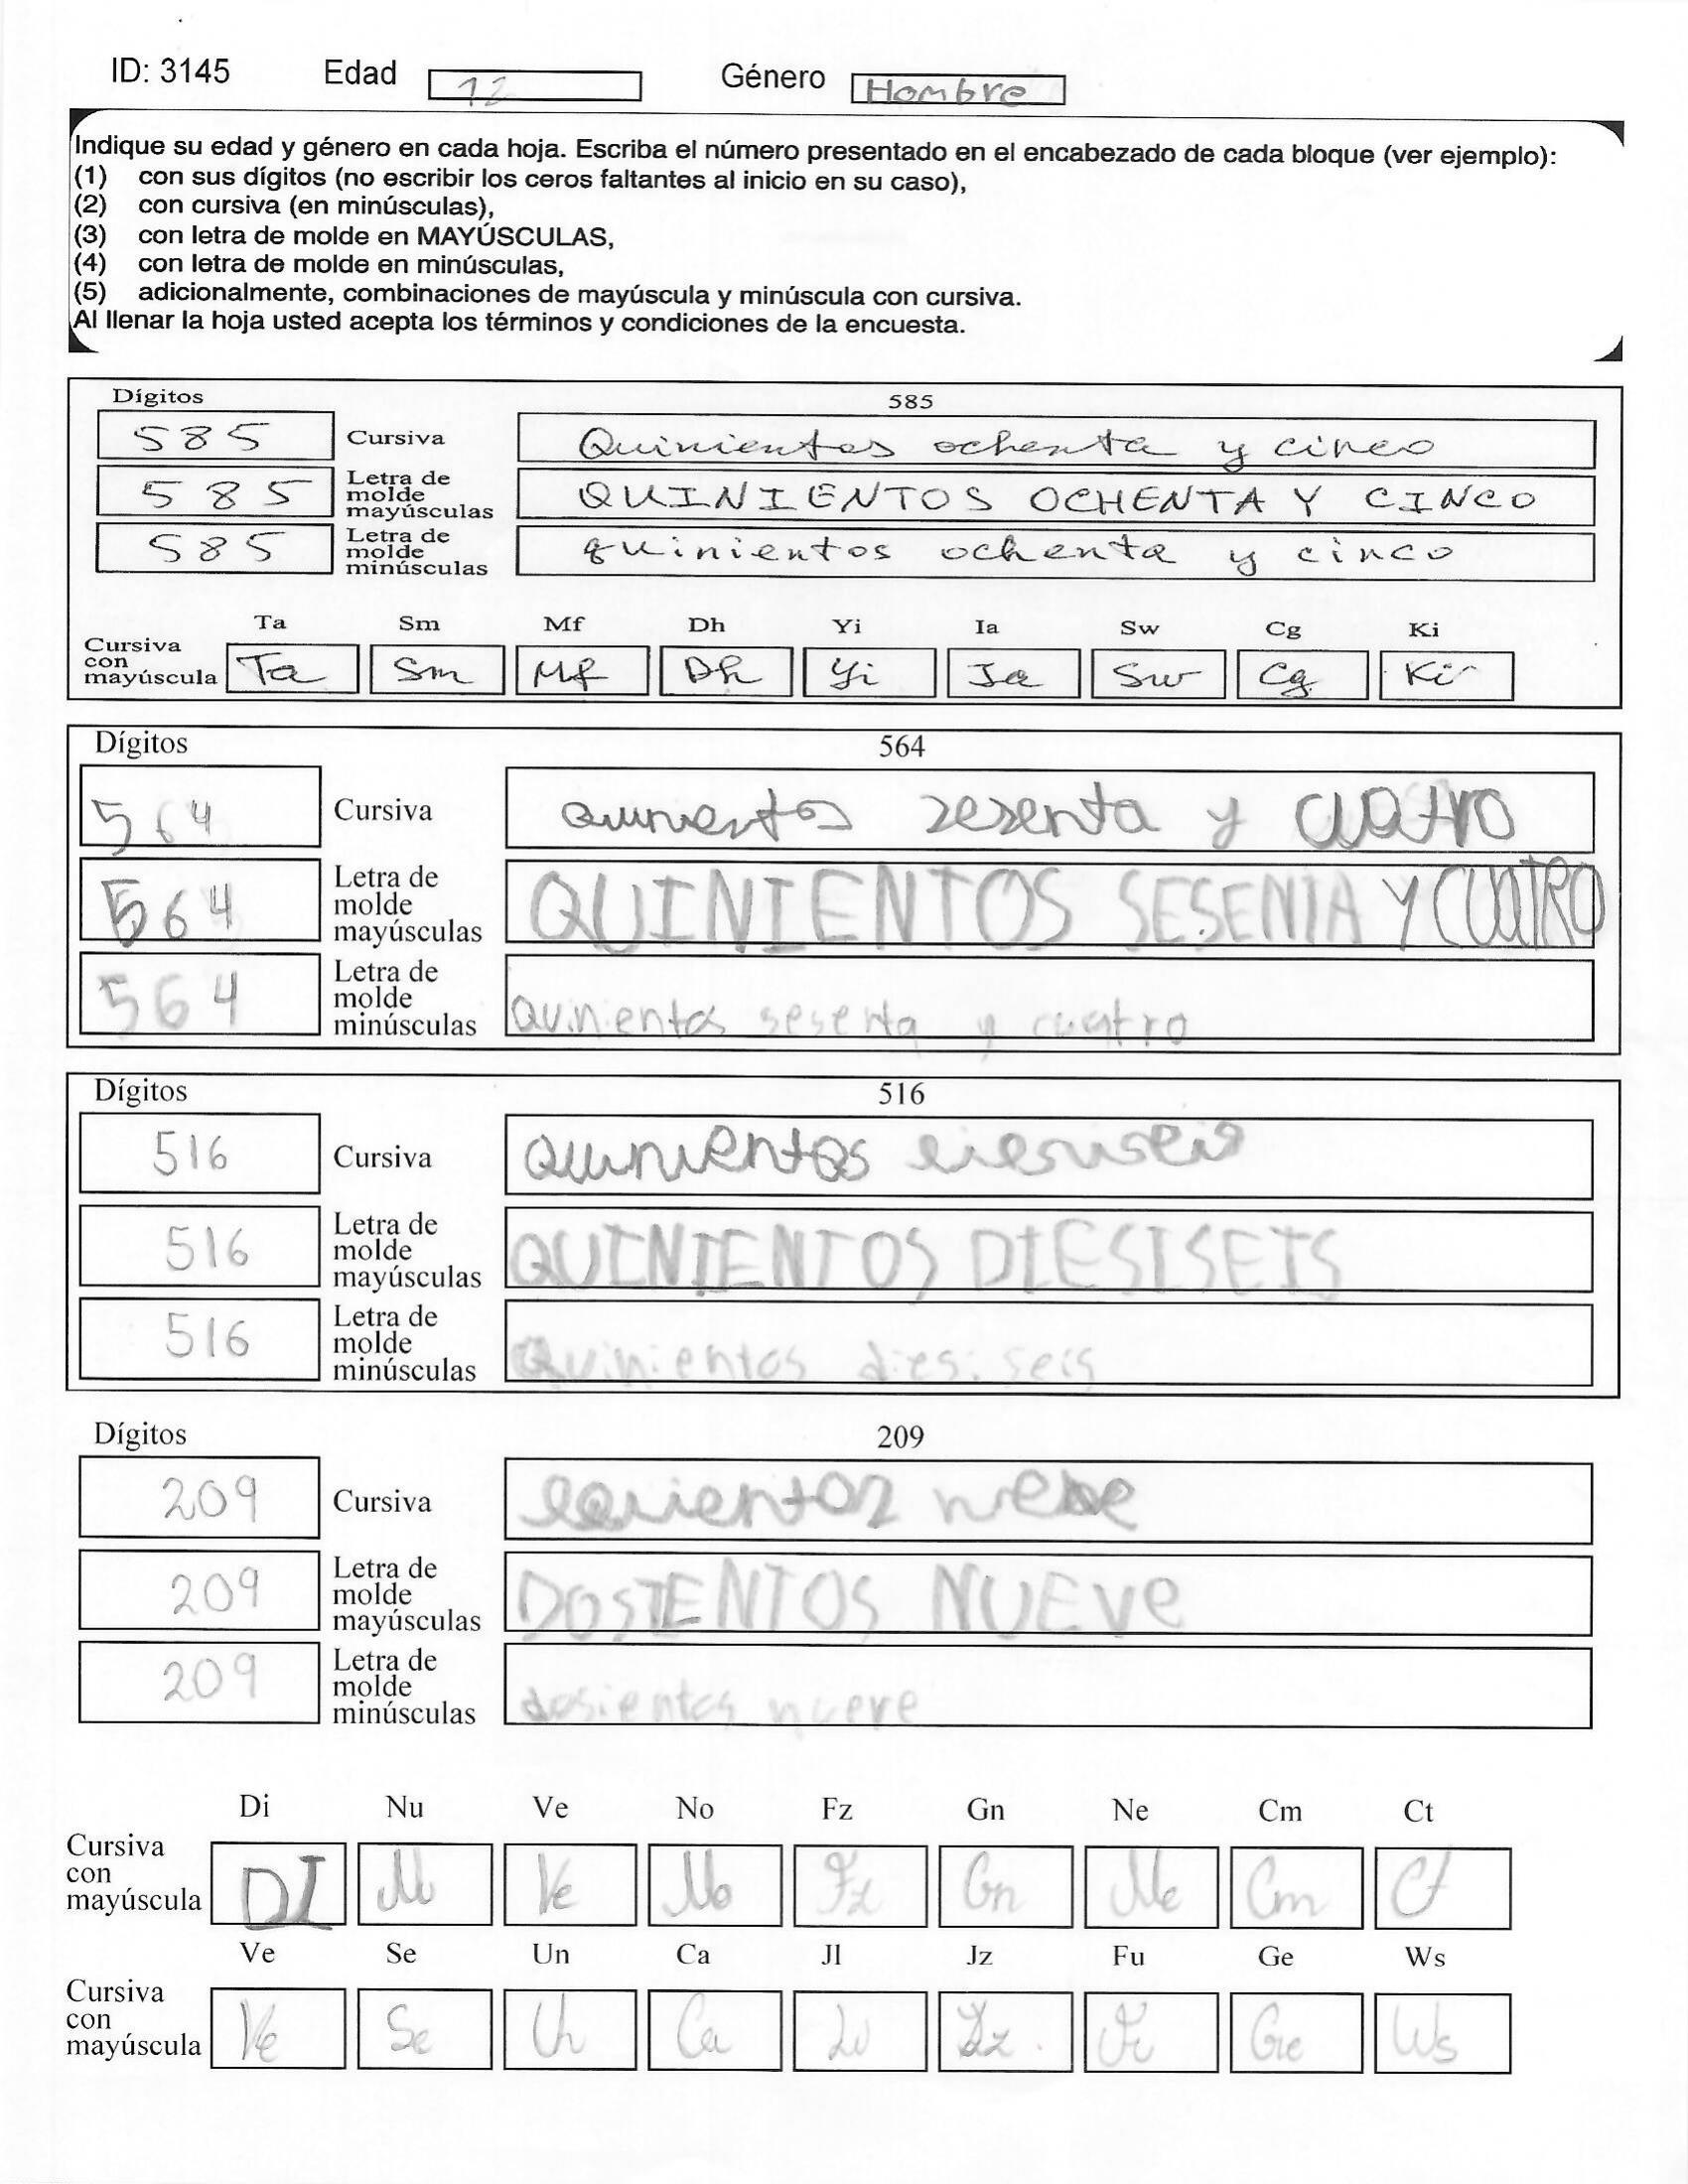 ID: 3145 Edad 12 Género Hombre
Indique su edad y género en cada hoja. Escriba el número presentado en el encabezado de cada bloque (ver ejemplo):
(1) con sus dígitos (no escribir los ceros faltantes al inicio en su caso),
(2) con cursiva (en minúsculas),
(3) con letra de molde en MAYÚSCULAS,
(4) con letra de molde en minúsculas,
(5) adicionalmente, combinaciones de mayúscula y minúscula con cursiva.
Al llenar la hoja usted acepta los términos y condiciones de la encuesta.
Dígitos 585
585 Cursiva Quinientos ochenta y cinco
585 Letra de molde mayúsculas QUINIENTOS OCHENTA Y CINCO
585 Letra de molde minúsculas quinientos ochenta y cinco
Ta Sm Mf Dh Yi Ia Sw Cg Ki
Cursiva con mayúscula Ta Sm Mf Dh Yi Ia Sw Cg Ki
Dígitos 564
564 Cursiva sesenta y cuatro
564 Letra de molde mayúsculas QUINIENTOS SESENTA Y CUaTRO
564 Letra de molde minúsculas Quinientos sesenta y cuatro
Dígitos 516
516 Cursiva Quinientos
516 Letra de molde mayúsculas QUINIENTOS DIESISEIS
516 Letra de molde minúsculas Quinientos diesiseis
Dígitos 209
209 Cursiva
209 Letra de molde mayúsculas DOSIENTOS NUEVe
209 Letra de molde minúsculas dosientos nueve
Di Nu Ve No Fz Gn Ne Cm Ct
Cursiva con mayúscula DI Nu Ve No Fz Gn Ne Cm Ct
Ve Se Un Ca Jl Jz Fu Ge Ws
Cursiva con mayúscula Ve Se Un Ca Jz Fu Ge Ws